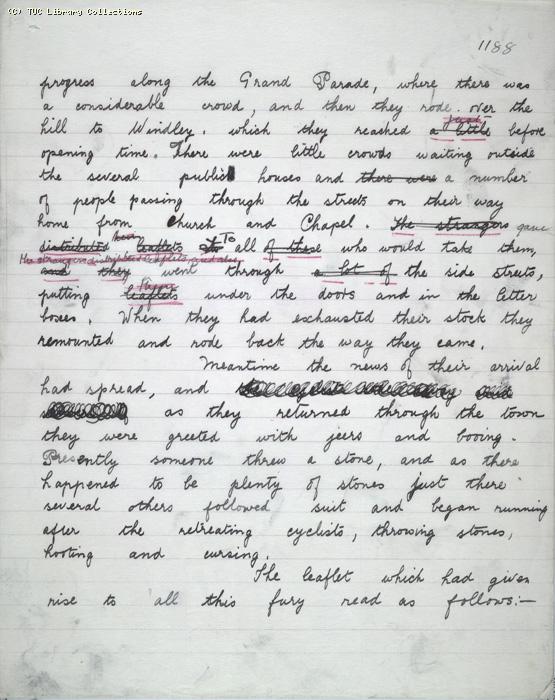 (C) TUC Library Collections
1188
progress along the Grand Parade, where there was
a considerable crowd, and then they rode over the
just
hill to Windley. which they reached a little before
opening time. There were little crowds waiting outside
the several public houses and there were a number
of people passing through the streets on their way
home from Church and Chapel. The strangers gave
distributed leaflets to To all of these who would take them,
The strangers distributed leaflets and also
and they went through a lot of the side streets,
putting leaflets under the doors and in the letter
boxes. When they had exhausted their stock they
remounted and rode back the way they came.
Meantime the news of their arrival
had spread, and
as they returned through the town
they were greeted with jeers and booing.
Presently someone threw a stone, and as there
happened to be plenty of stones just there
several others followed suit and began running
after the retreating cyclists, throwing stones,
hooting and cursing.
The leaflet which had given
rise to all this fury read as follows:—